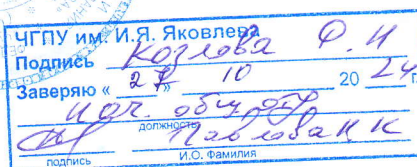 ЧГПУ им. И.Я. Яковлева
Подпись Козлова Ф. И
Заверяю « 27 » 10 20 24 г.
нач. общ. отд
должность
Павлова Н К
подпись И.О. Фамилия